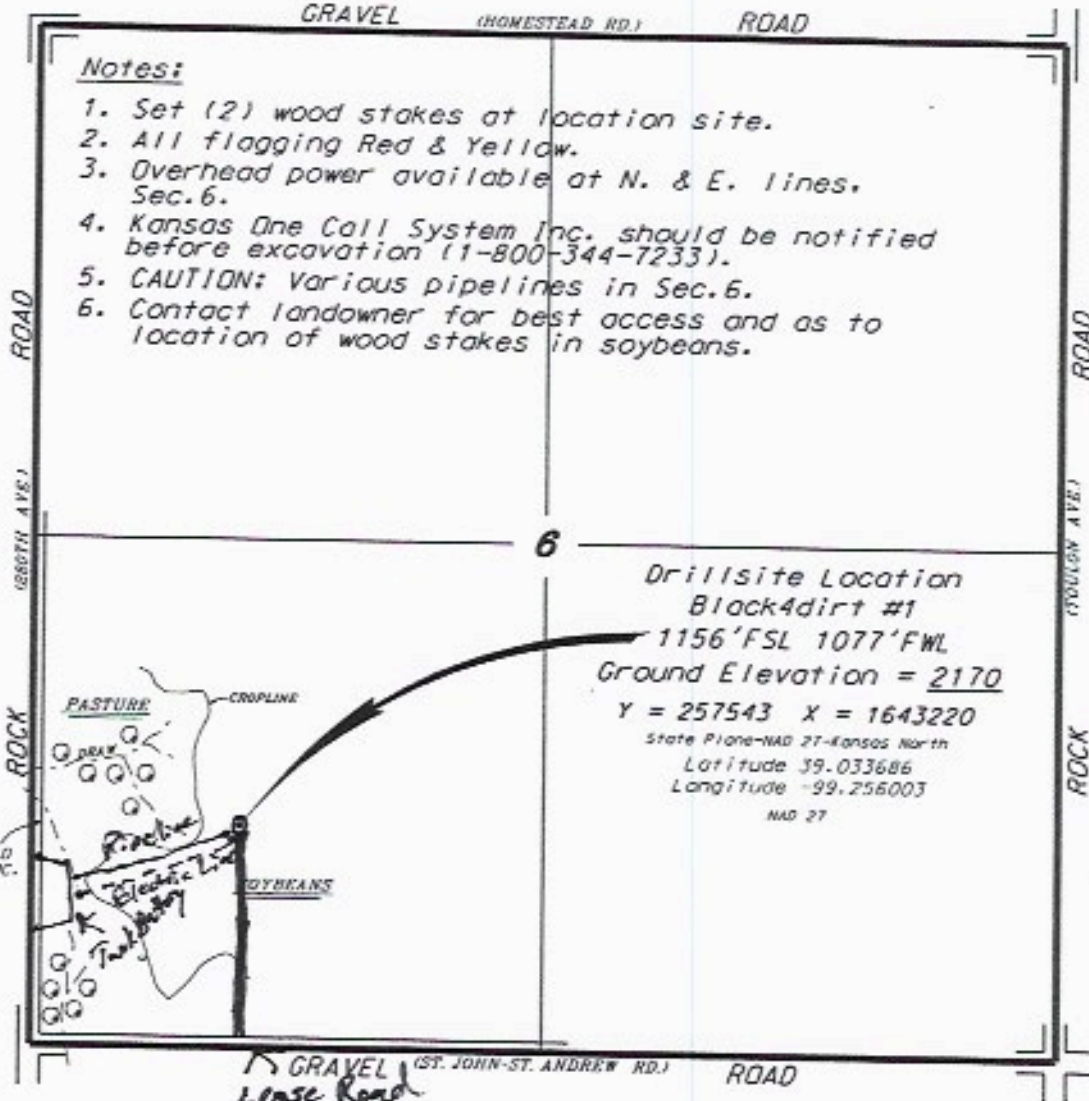 GRAVEL (HOMESTEAD RD.) ROAD
Notes:
1. Set (2) wood stakes at location site.
2. All flagging Red & Yellow.
3. Overhead power available at N. & E. lines.
Sec.6.
4. Kansas One Call System Inc. should be notified
before excavation (1-800-344-7233).
5. CAUTION: Various pipelines in Sec.6.
6. Contact landowner for best access and as to
location of wood stakes in soybeans.
ROAD
ROAD
(280TH AVE.)
(TOULON AVE.)
6
Drillsite Location
Black4dirt #1
1156'FSL 1077'FWL
Ground Elevation = 2170
Y = 257543 X = 1643220
State Plane-NAD 27-Kansas North
Latitude 39.033686
Longitude -99.256003
NAD 27
PASTURE
CROPLINE
DRAW
ROCK
ROCK
Pipeline
Electric Line
Tank Battery
SOYBEANS
GRAVEL (ST. JOHN-ST. ANDREW RD.) ROAD
Lease Road